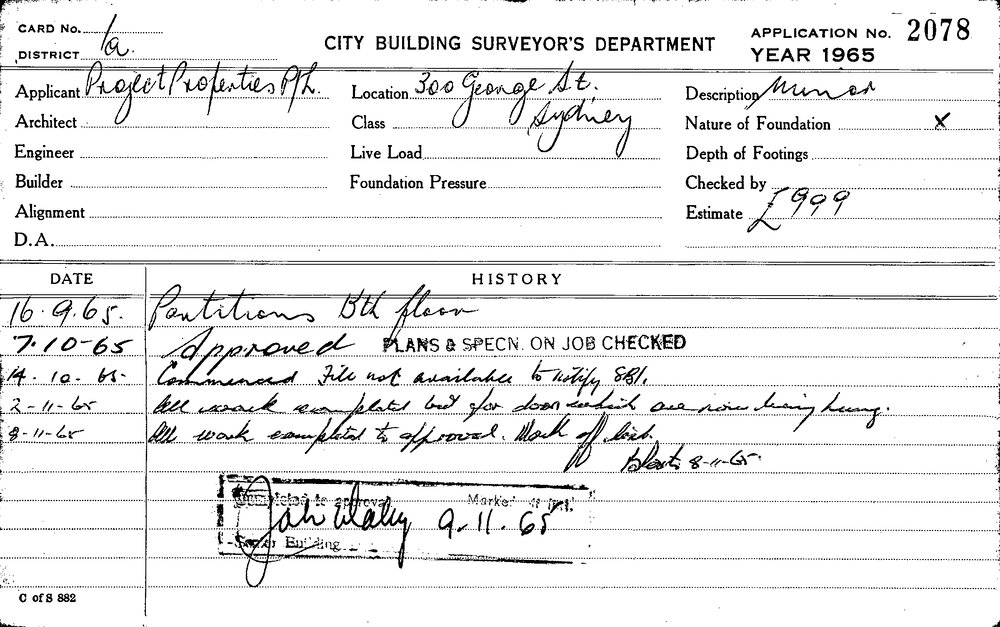 CARD No. 1a.
DISTRICT
CITY BUILDING SURVEYOR'S DEPARTMENT
APPLICATION No. 2078
YEAR 1965
Applicant Project Properties P/L.
Location 300 George St.
Sydney
Description Minor
Architect
Class
Nature of Foundation X
Engineer
Live Load
Depth of Footings
Builder
Foundation Pressure
Checked by
Alignment
Estimate £999
D.A.
DATE
HISTORY
16.9.65. Partitions 13th floor
7.10-65 Approved PLANS & SPECN. ON JOB CHECKED
14.10.65. Commenced File not available to notify SBI.
2-11-65 All work completed but for doors which are now being hung.
8-11-65 All work completed to approval. Mark off list.
8-11-65.
Completed to approval Marked off list.
9-11-65
Senior Building
C of S 882